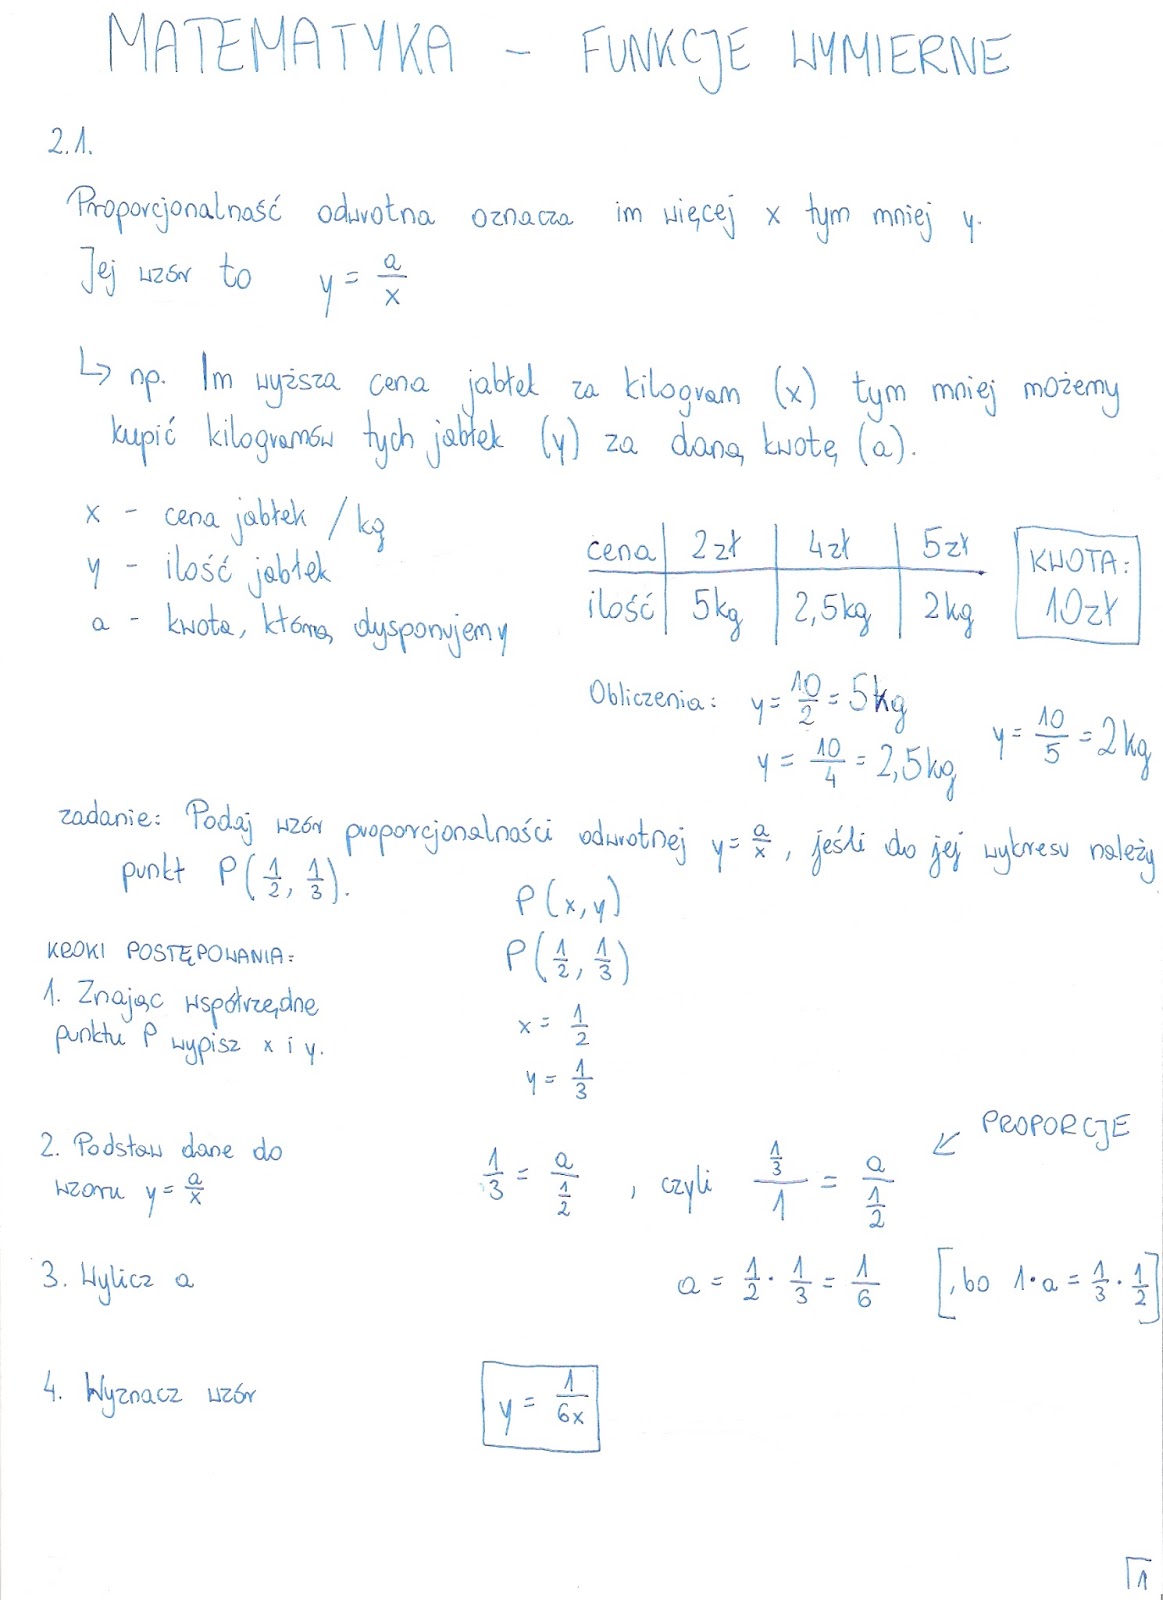 MATEMATYKA - FUNKCJE WYMIERNE
2.1.
Proporcjonalność odwrotna oznacza im więcej x tym mniej y.
Jej wzór to y = a/x
↳ np. Im wyższa cena jabłek za kilogram (x) tym mniej możemy
kupić kilogramów tych jabłek (y) za daną kwotę (a).
x - cena jabłek / kg
y - ilość jabłek
a - kwota, którą dysponujemy
cena | 2zł | 4zł | 5zł
ilość | 5kg | 2,5kg | 2kg
KWOTA:
10zł
Obliczenia: y = 10/2 = 5kg
y = 10/4 = 2,5kg
y = 10/5 = 2kg
zadanie: Podaj wzór proporcjonalności odwrotnej y = a/x, jeśli do jej wykresu należy
punkt P(1/2, 1/3).
KROKI POSTĘPOWANIA:
1. Znając współrzędne
punktu P wypisz x i y.
P(x,y)
P(1/2, 1/3)
x = 1/2
y = 1/3
2. Podstaw dane do
wzoru y = a/x
1/3 = a/(1/2), czyli (1/3)/1 = a/(1/2)
↙ PROPORCJE
3. Wylicz a
a = 1/2 · 1/3 = 1/6 [, bo 1·a = 1/3 · 1/2]
4. Wyznacz wzór
y = 1/6x
1